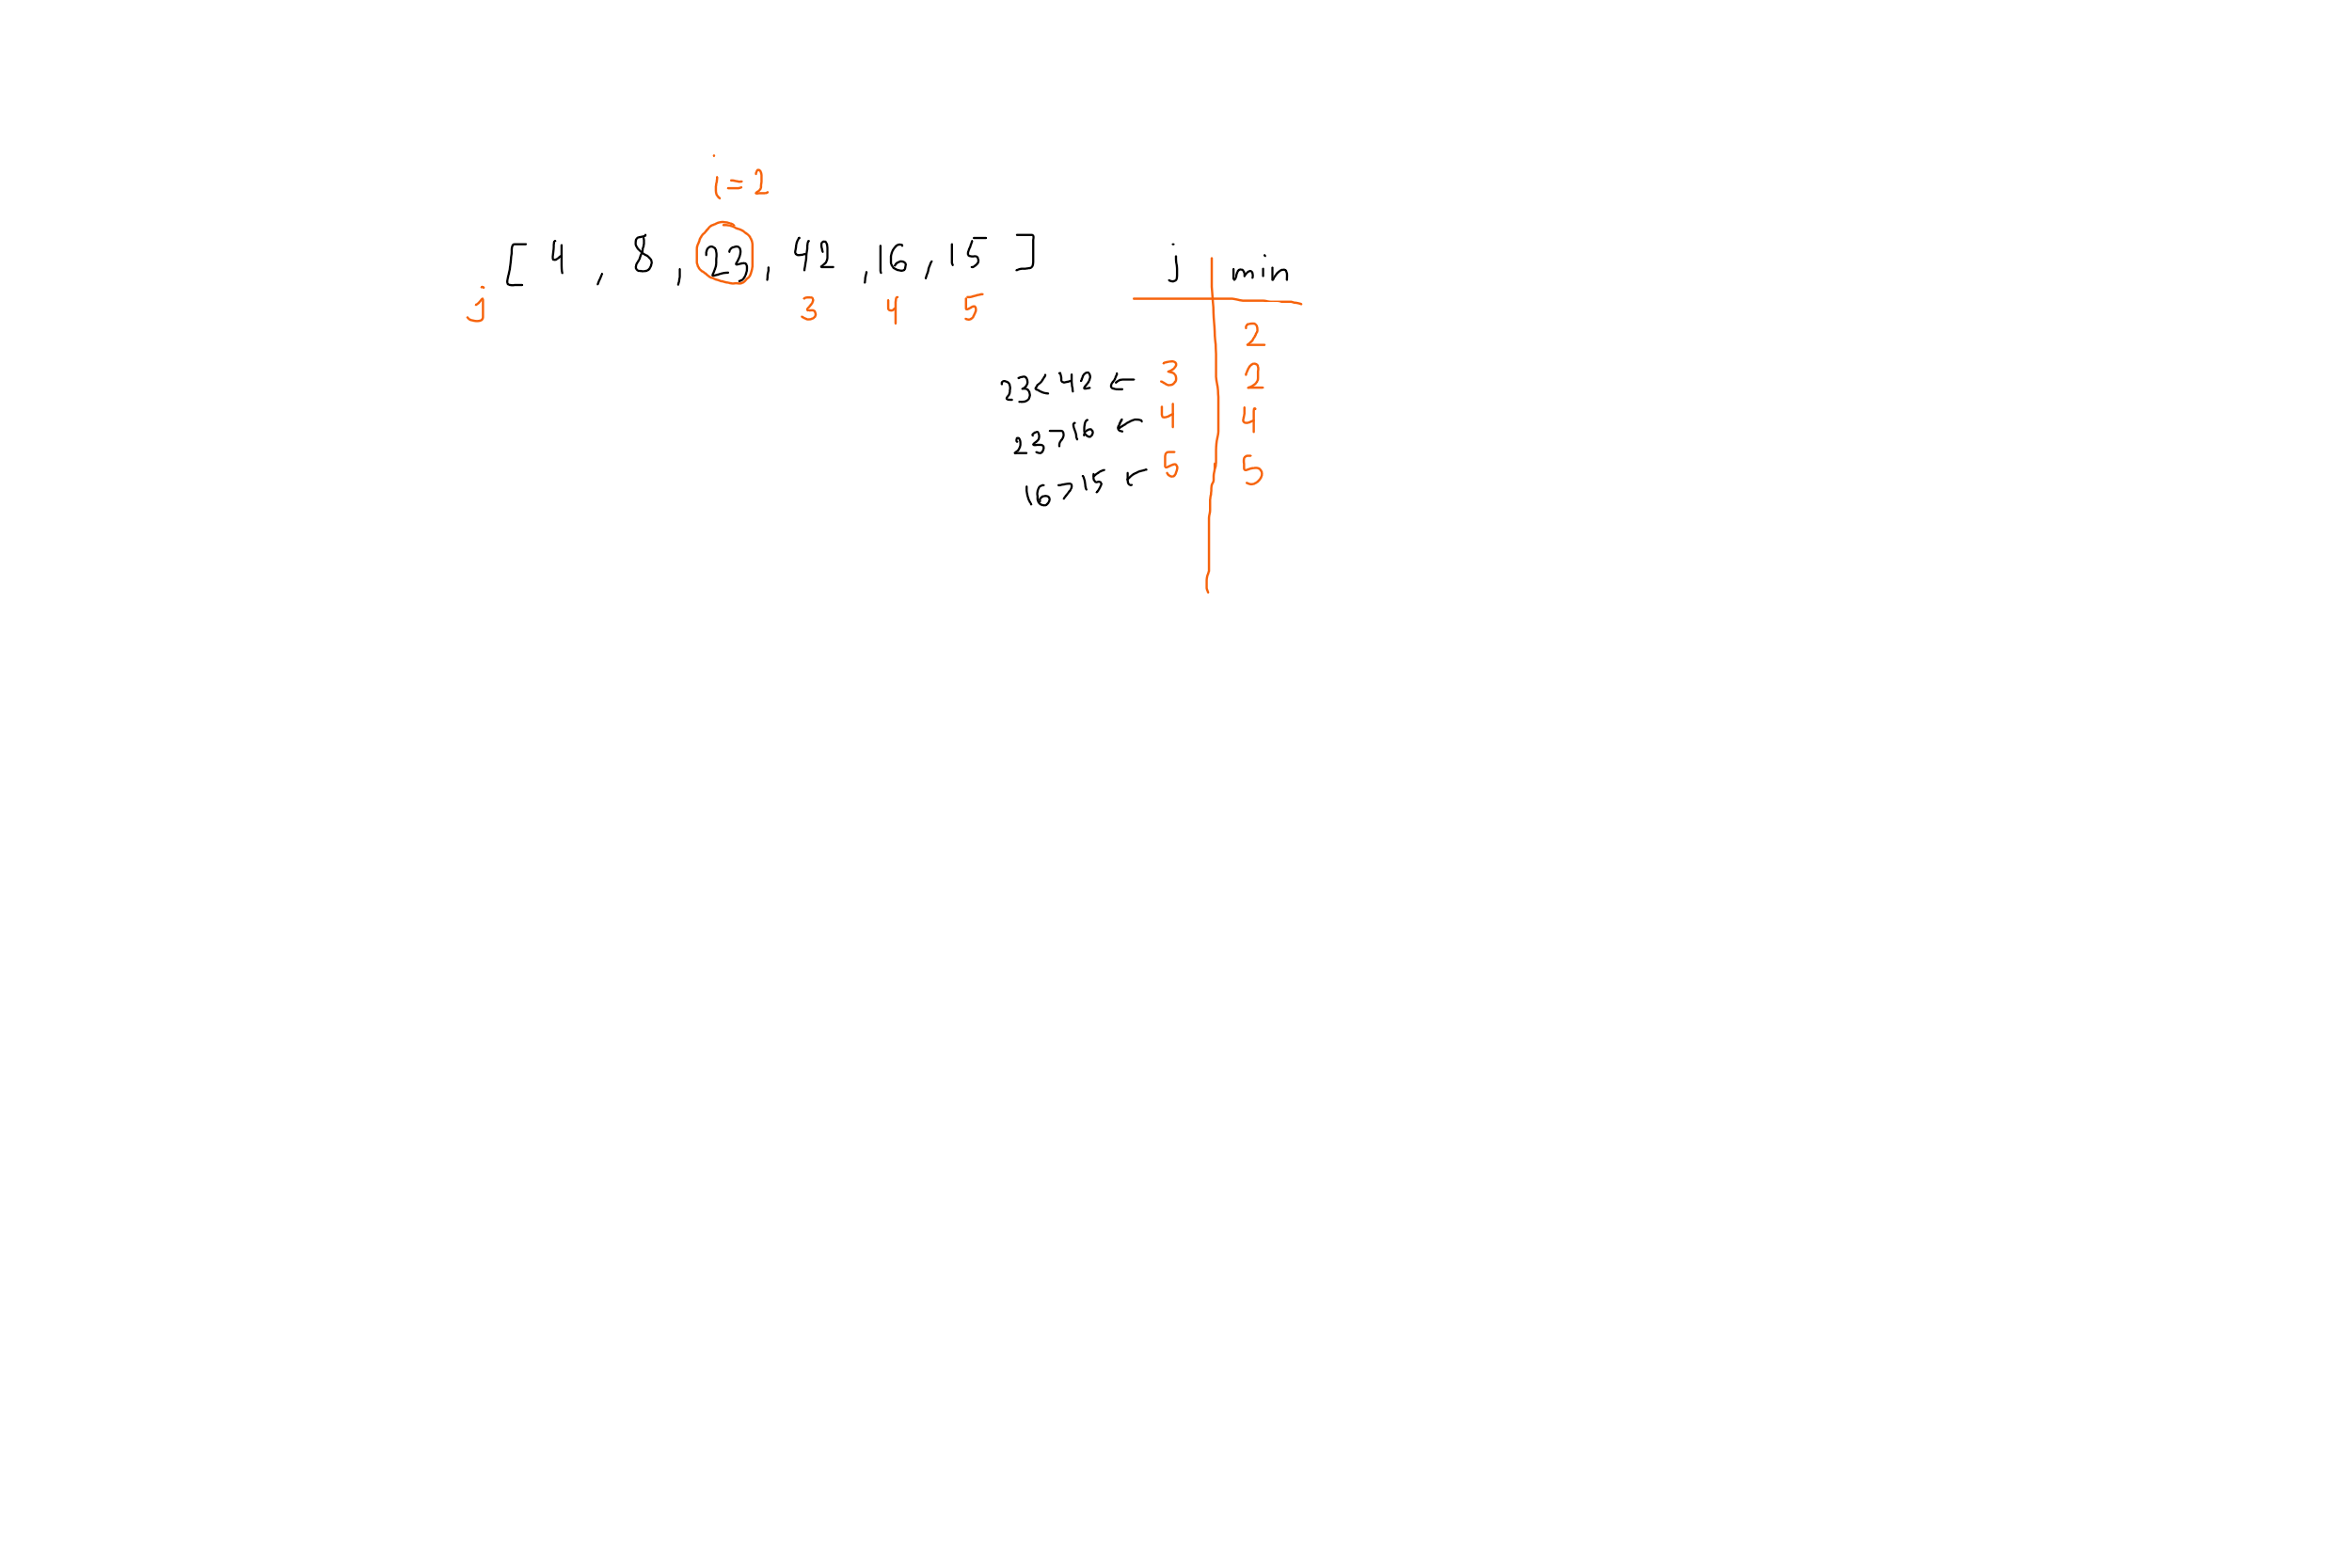 i = 2
[ 4 , 8 , 23 , 42 , 16 , 15 ]
j 3 4 5
j min
2
23 < 42 ← 3 2
23 > 16 ← 4 4
16 > 15 ← 5 5